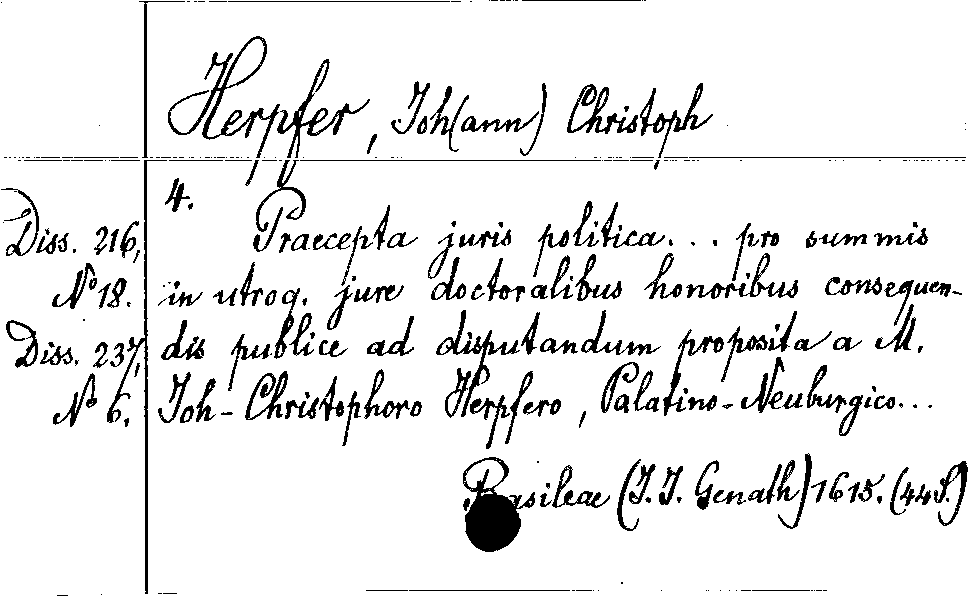 Herpfer, Joh(ann) Christoph
4.
Diss. 216, Praecepta juris politica... pro summis
No 18. in utroq. jure doctoralibus honoribus consequen-
Diss. 237, dis publice ad disputandum proposita a M.
No 6. Joh-Christophoro Herpfero, Palatino-Neuburgico...
Basileae (J. J. Genath) 1615. (44 S.)